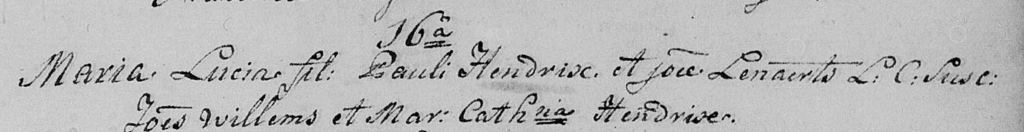 16ª
Maria Lucia fil: Pauli Hendrix et joæ Lenaerts L: C: Susc:
Joēs Willems et Mar: Cathria Hendrix.